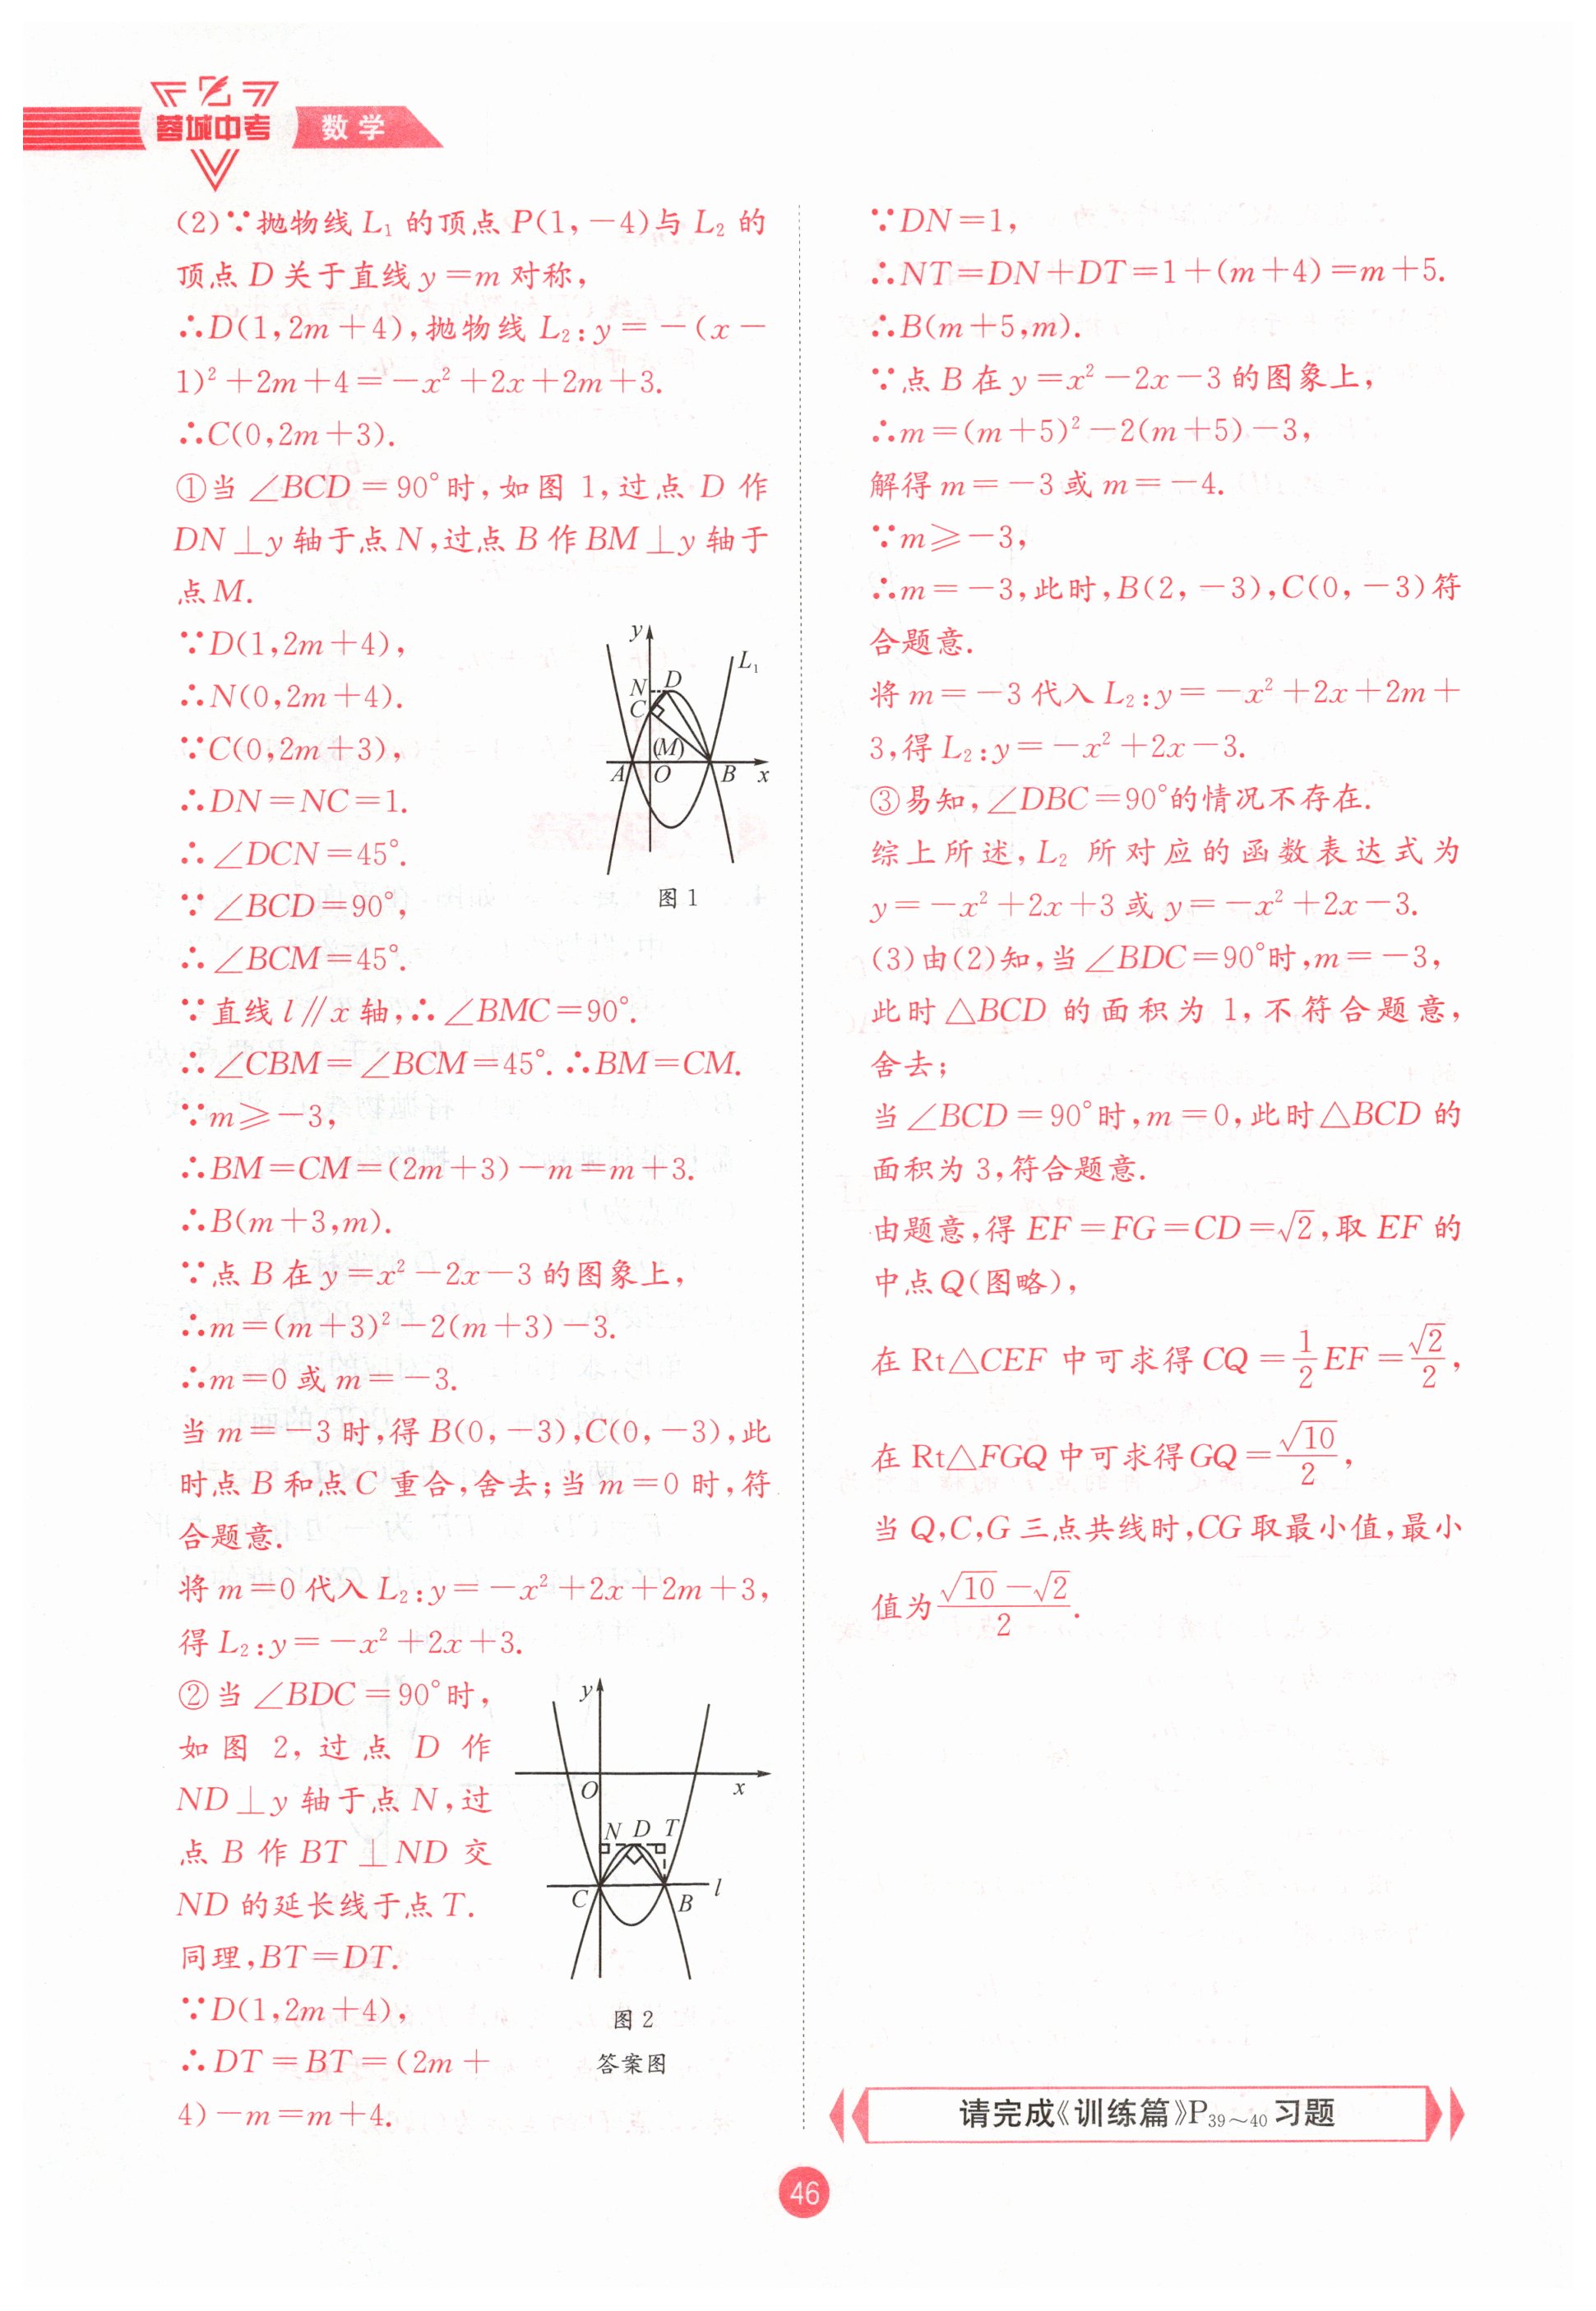 蓉城中考 数学
(2)∵抛物线 L₁ 的顶点 P(1,－4)与 L₂ 的
顶点 D 关于直线 y＝m 对称，
∴D(1,2m＋4)，抛物线 L₂：y＝－(x－
1)²＋2m＋4＝－x²＋2x＋2m＋3.
∴C(0,2m＋3).
①当∠BCD＝90°时，如图 1，过点 D 作
DN⊥y 轴于点 N，过点 B 作 BM⊥y 轴于
点 M.
∵D(1,2m＋4)，
∴N(0,2m＋4).
∵C(0,2m＋3)，
∴DN＝NC＝1.
∴∠DCN＝45°.
∵∠BCD＝90°，
∴∠BCM＝45°.
y
L₁
N D
C
(M)
A O B x
图 1
∵直线 l∥x 轴，∴∠BMC＝90°.
∴∠CBM＝∠BCM＝45°.∴BM＝CM.
∵m≥－3，
∴BM＝CM＝(2m＋3)－m＝m＋3.
∴B(m＋3,m).
∵点 B 在 y＝x²－2x－3 的图象上，
∴m＝(m＋3)²－2(m＋3)－3.
∴m＝0 或 m＝－3.
当 m＝－3 时，得 B(0,－3),C(0,－3)，此
时点 B 和点 C 重合，舍去；当 m＝0 时，符
合题意.
将 m＝0 代入 L₂：y＝－x²＋2x＋2m＋3，
得 L₂：y＝－x²＋2x＋3.
②当∠BDC＝90°时，
如图 2，过点 D 作
ND⊥y 轴于点 N，过
点 B 作 BT⊥ND 交
ND 的延长线于点 T.
同理，BT＝DT.
∵D(1,2m＋4)，
∴DT＝BT＝(2m＋
4)－m＝m＋4.
y
O x
N D T
C B l
图 2
答案图
∵DN＝1，
∴NT＝DN＋DT＝1＋(m＋4)＝m＋5.
∴B(m＋5,m).
∵点 B 在 y＝x²－2x－3 的图象上，
∴m＝(m＋5)²－2(m＋5)－3，
解得 m＝－3 或 m＝－4.
∵m≥－3，
∴m＝－3，此时，B(2,－3),C(0,－3)符
合题意.
将 m＝－3 代入 L₂：y＝－x²＋2x＋2m＋
3，得 L₂：y＝－x²＋2x－3.
③易知，∠DBC＝90°的情况不存在.
综上所述，L₂ 所对应的函数表达式为
y＝－x²＋2x＋3 或 y＝－x²＋2x－3.
(3)由(2)知，当∠BDC＝90°时，m＝－3，
此时△BCD 的面积为 1，不符合题意，
舍去；
当∠BCD＝90°时，m＝0，此时△BCD 的
面积为 3，符合题意.
由题意，得 EF＝FG＝CD＝√2，取 EF 的
中点 Q(图略)，
在 Rt△CEF 中可求得 CQ＝1/2 EF＝√2/2，
在 Rt△FGQ 中可求得 GQ＝√10/2，
当 Q,C,G 三点共线时，CG 取最小值，最小
值为(√10－√2)/2.
请完成《训练篇》P₃₉～₄₀习题
46